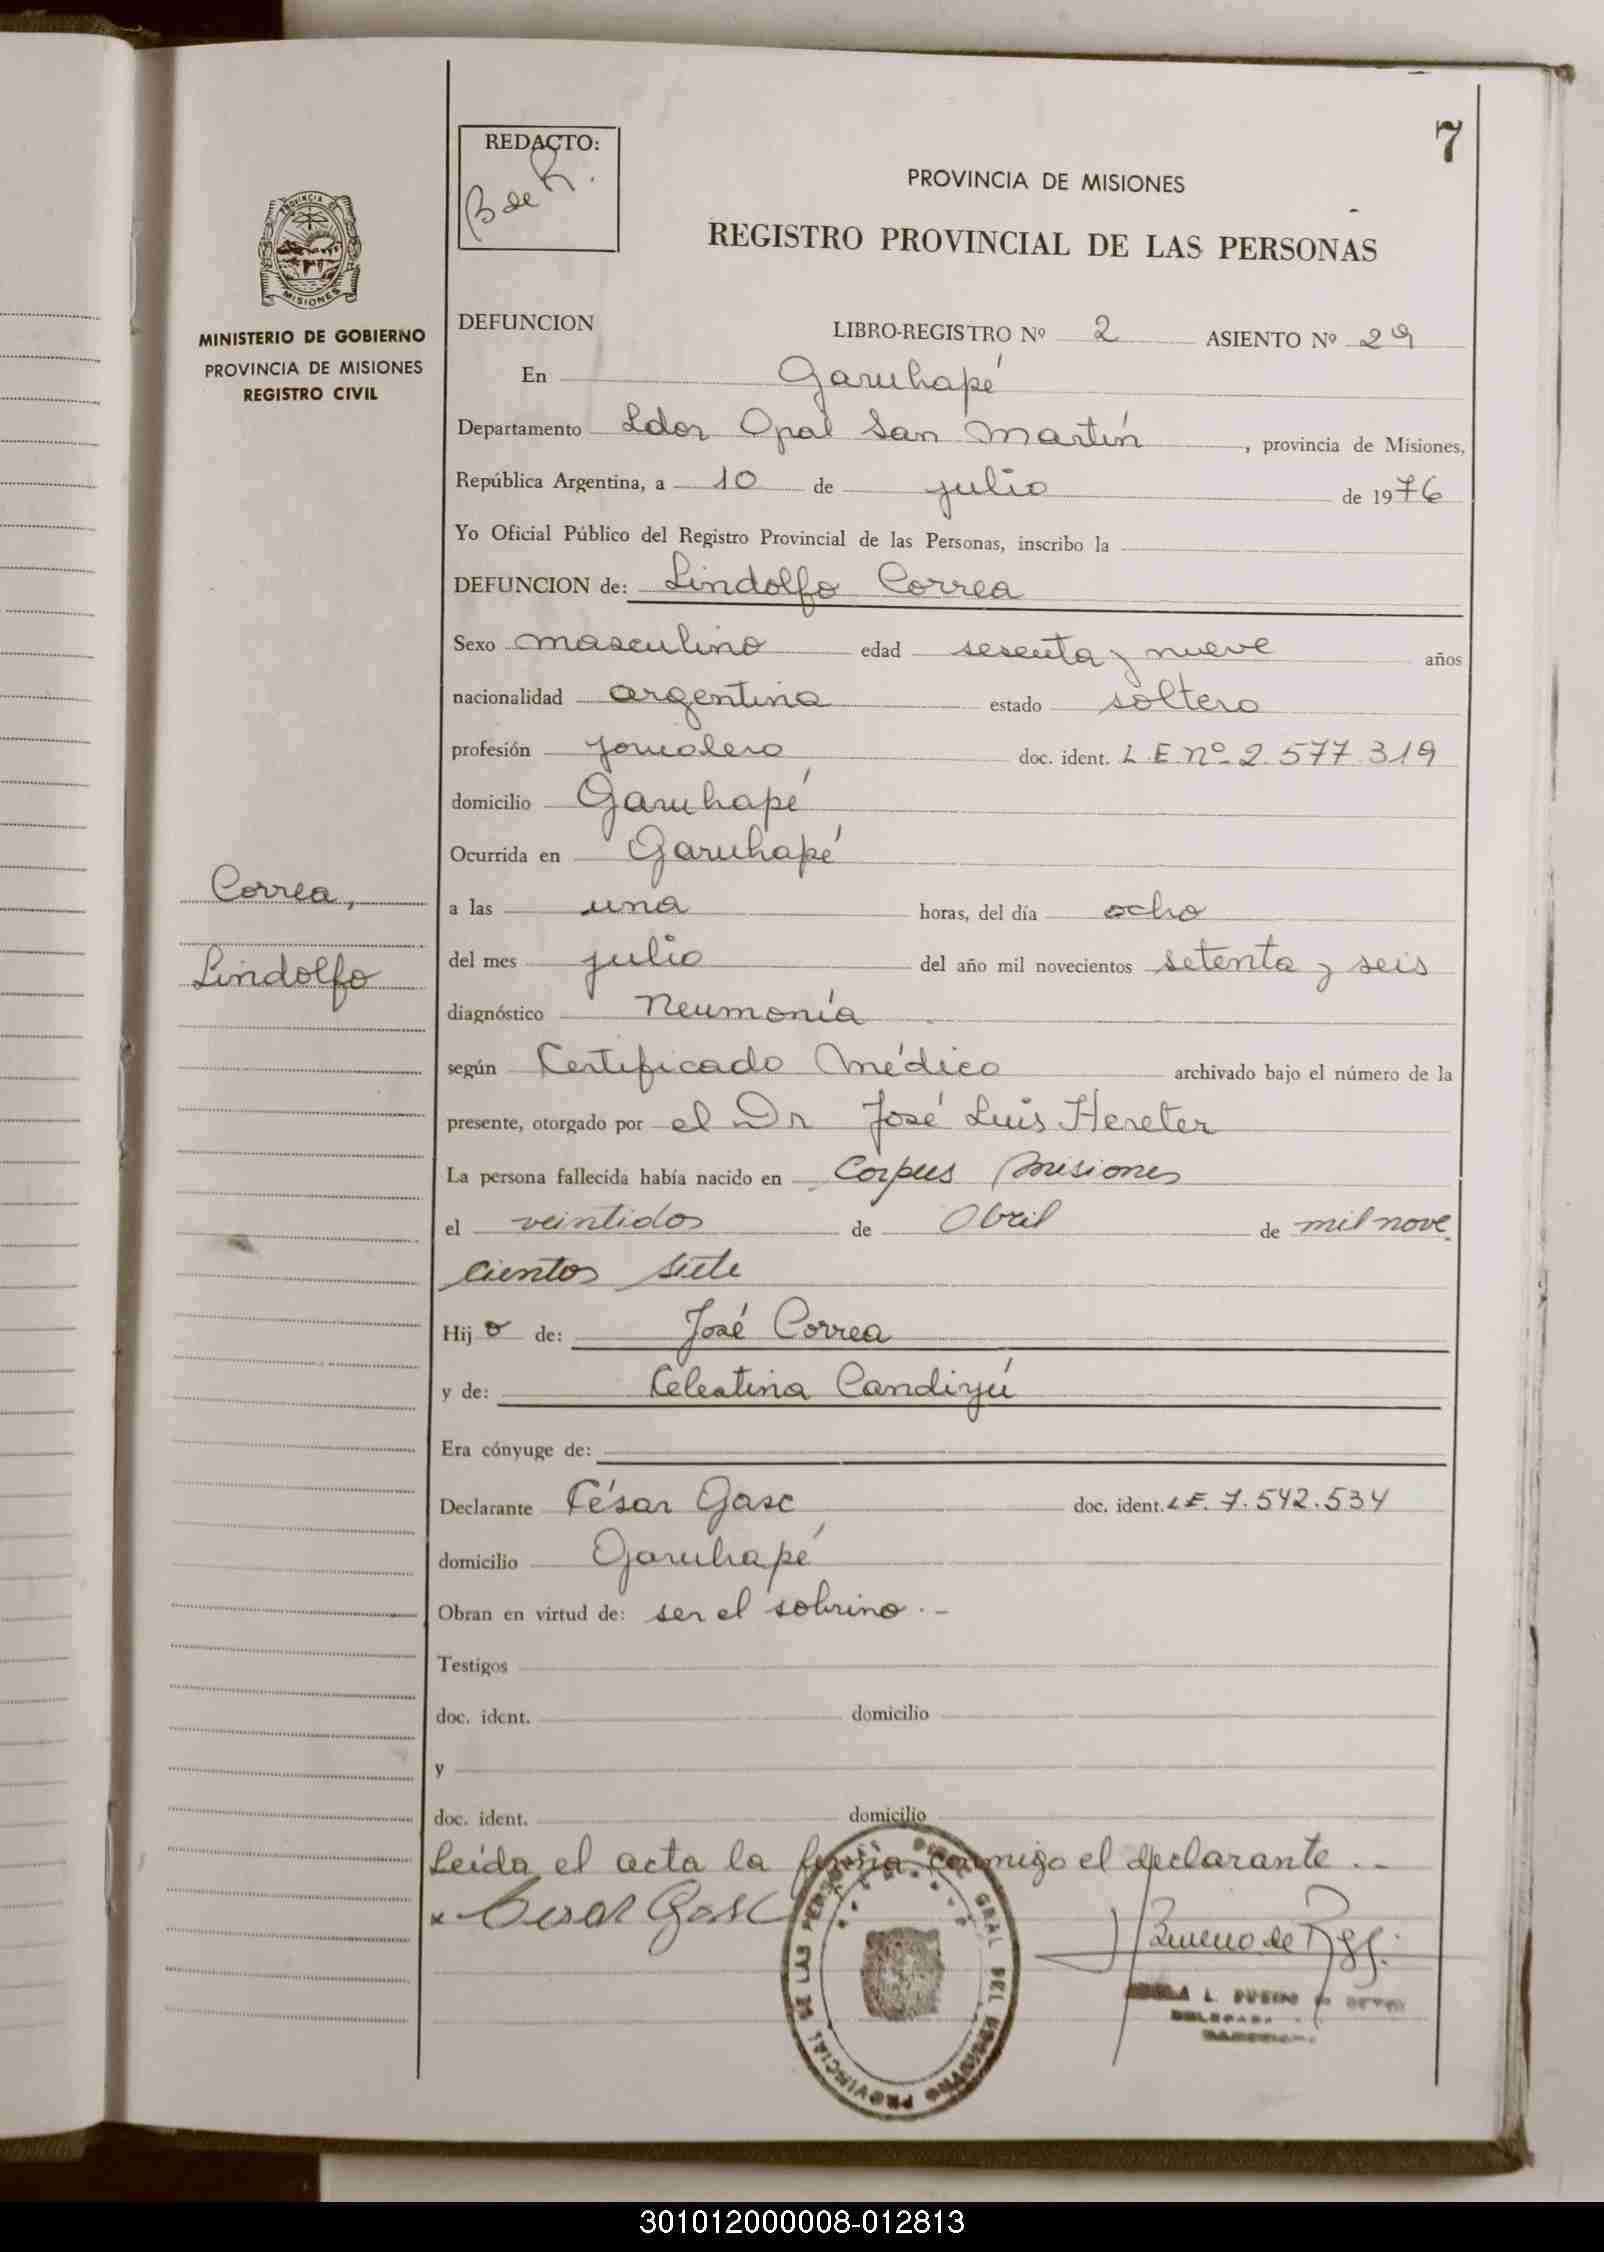 7
REDACTO:
B de R.
PROVINCIA DE MISIONES
REGISTRO PROVINCIAL DE LAS PERSONAS
PROVINCIA DE
MISIONES
MINISTERIO DE GOBIERNO
PROVINCIA DE MISIONES
REGISTRO CIVIL
DEFUNCION LIBRO-REGISTRO Nº 2 ASIENTO Nº 29
En Garuhapé
Departamento Ldor Gral San Martín, provincia de Misiones,
República Argentina, a 10 de julio de 1976
Yo Oficial Público del Registro Provincial de las Personas, inscribo la
DEFUNCION de: Lindolfo Correa
Sexo masculino edad sesenta y nueve años
nacionalidad argentina estado soltero
profesión jornalero doc. ident. L.E. nº 2.577.319
domicilio Garuhapé
Ocurrida en Garuhapé
Correa,
Lindolfo
a las una horas, del día ocho
del mes julio del año mil novecientos setenta y seis
diagnóstico Neumonía
según Certificado Médico archivado bajo el número de la
presente, otorgado por el Dr José Luis Hereter
La persona fallecida había nacido en Corpus Misiones
el veintidos de Abril de mil nove
cientos siete
Hijo de: José Correa
y de: Celestina Candiyú
Era cónyuge de:
Declarante César Gasc doc. ident. L.E. 7.542.534
domicilio Garuhapé
Obran en virtud de: ser el sobrino.-
Testigos
doc. ident. domicilio
y
doc. ident. domicilio
Leída el acta la firma conmigo el declarante.-
x Cesar Gasc
Bueno de
DIR. GRAL DEL REGISTRO PROVINCIAL DE LAS PERSONAS
301012000008-012813